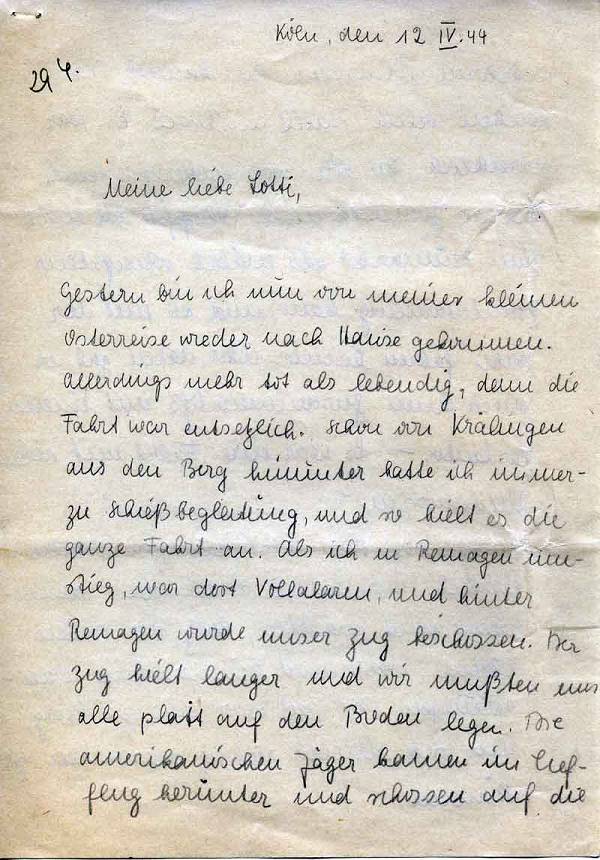 Köln, den 12 IV. 44
29 4.
Meine liebe Lotti,
Gestern bin ich nun von meiner kleinen
Osterreise wieder nach Hause gekommen.
Allerdings mehr tot als lebendig, denn die
Fahrt war entsetzlich. Schon von Krälingen
aus den Berg hinunter hatte ich immer-
zu Schießbegleitung, und so hielt es die
ganze Fahrt an. Als ich in Remagen um-
stieg, war dort Vollalarm, und hinter
Remagen wurde unser Zug beschossen. Der
Zug hielt langer und wir mußten uns
alle platt auf den Boden legen. Die
amerikanischen Jäger kamen im Tief-
flug herunter und schossen auf die